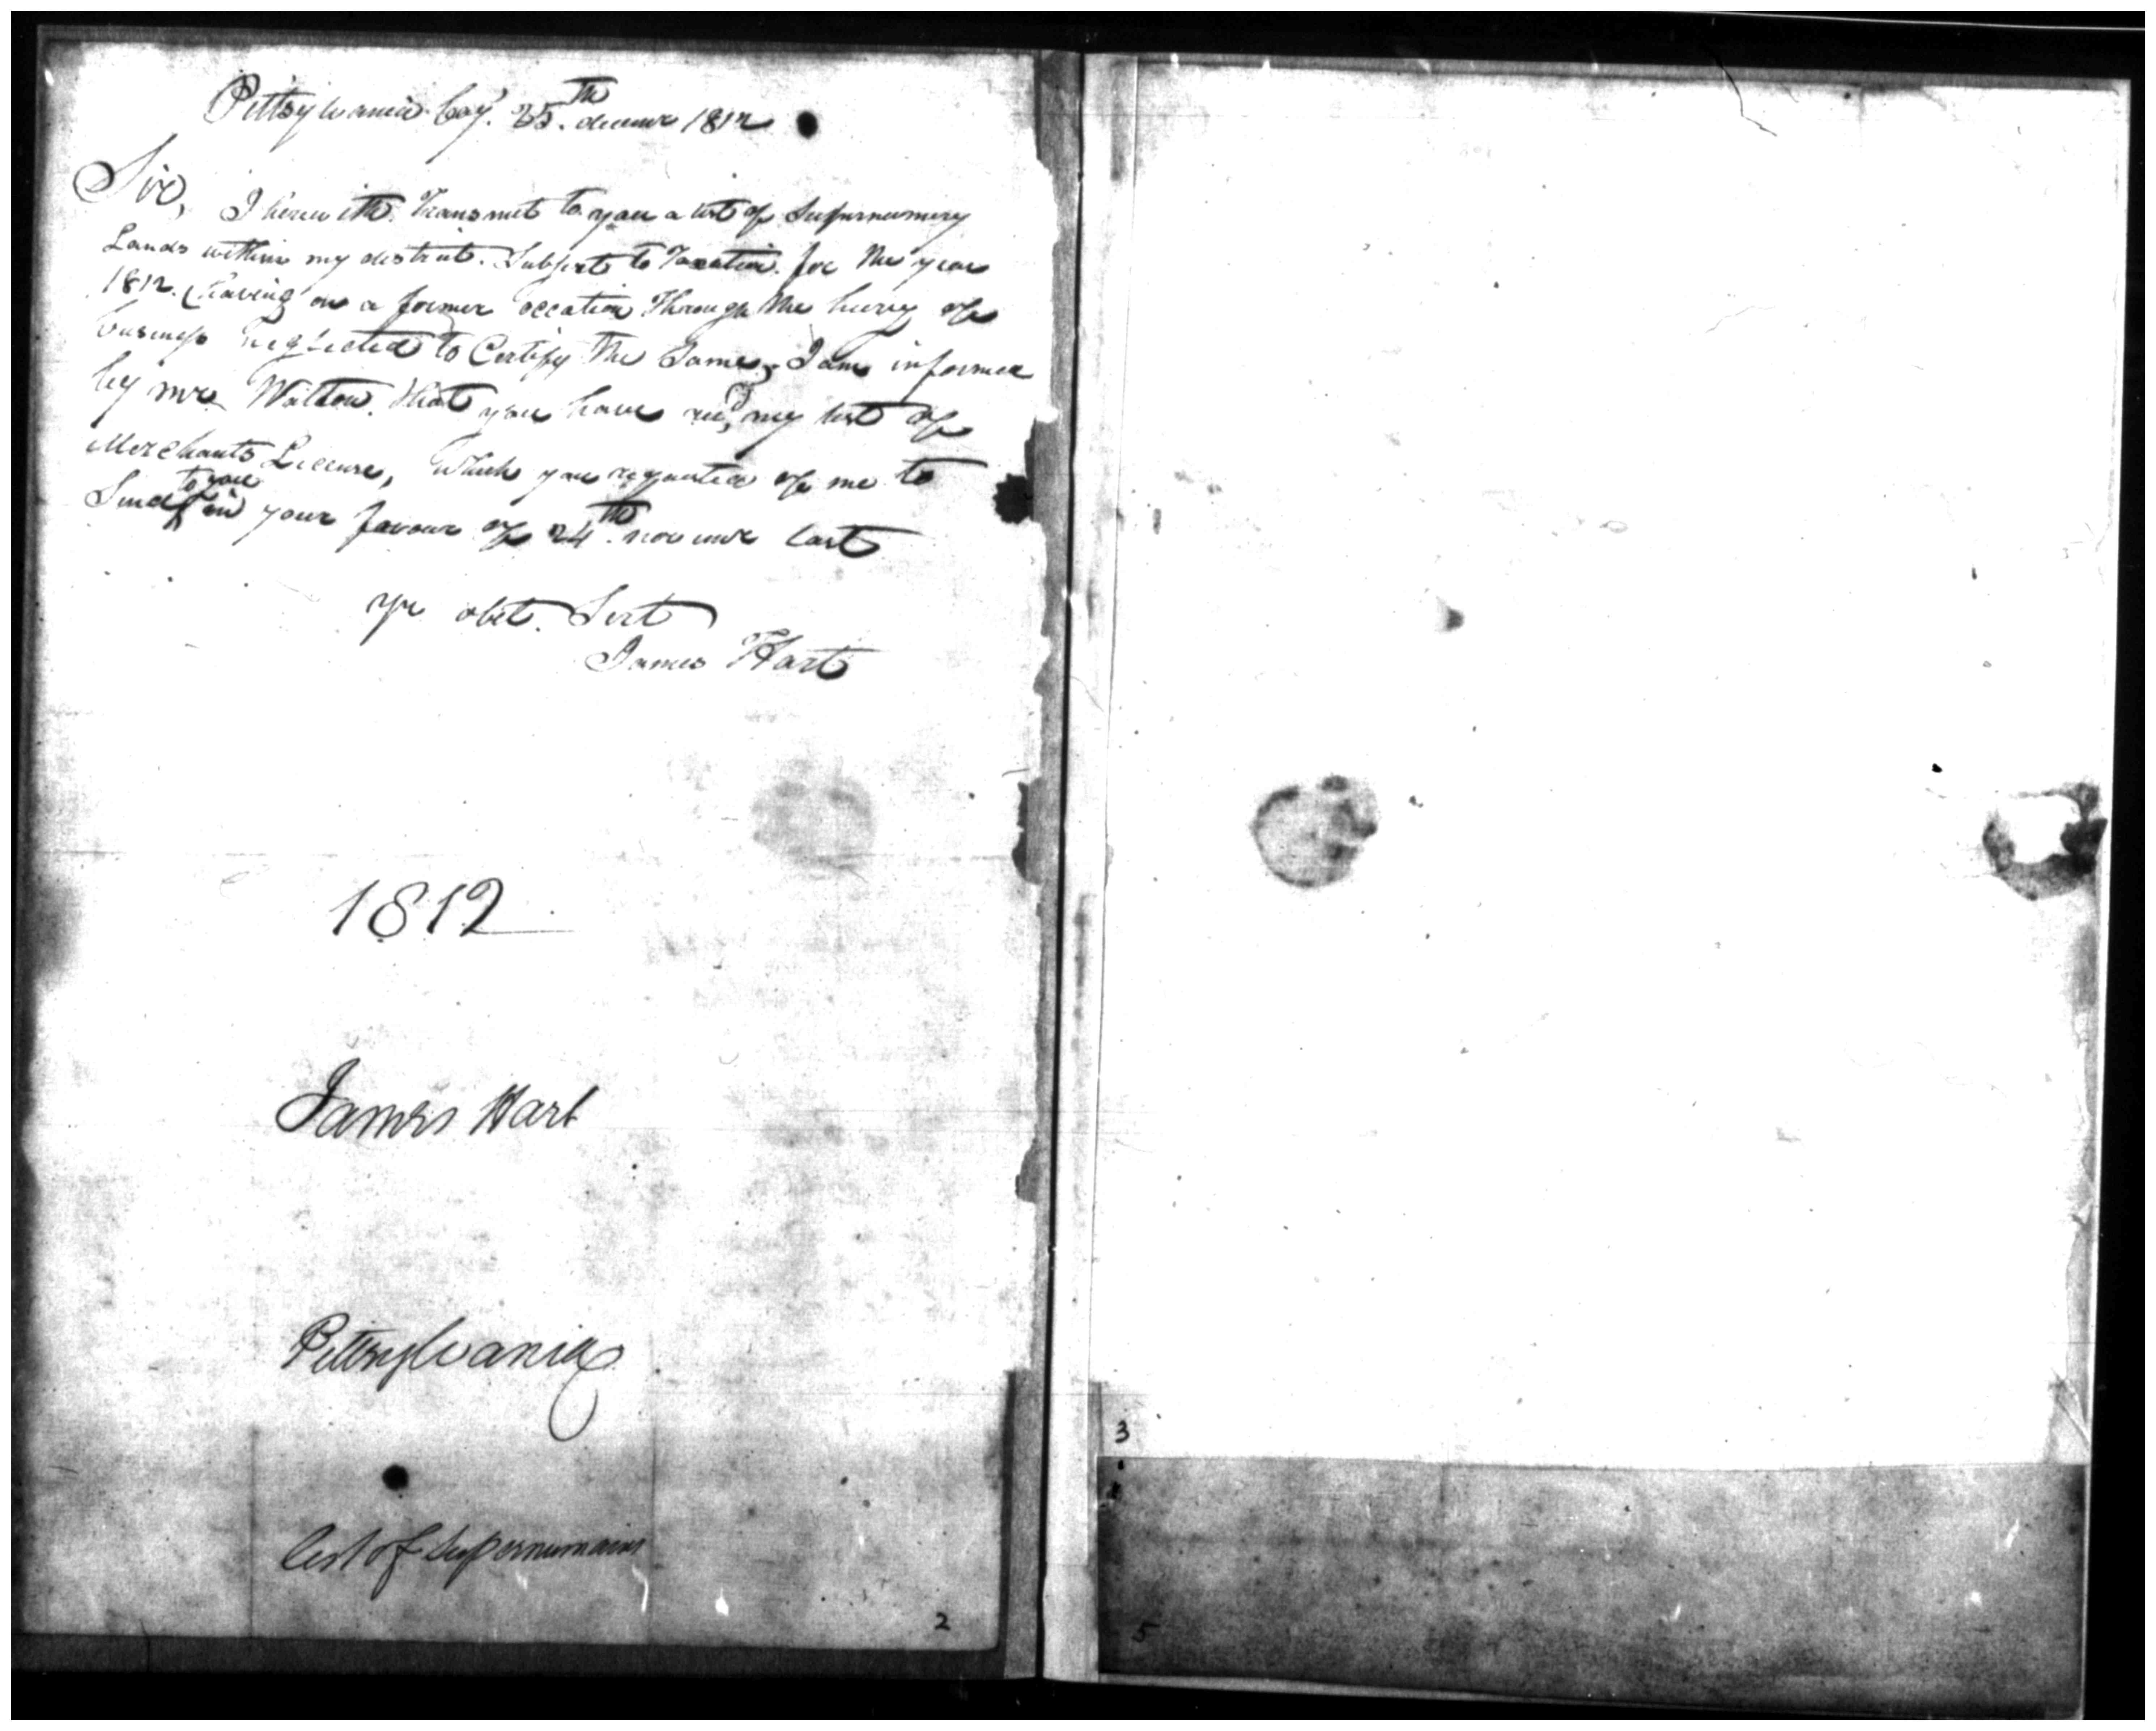 Pittsylvania Coy. 25th. decemr 1812
Sir,
I herewith Transmit to you a list of Supernumery
Lands within my district. Subject to Taxation. for the year
1812. (having on a former occation Through the hurry of
business neglected to Certify the Same, I am informed
by mr. Walton. that you have recd, my list of
Merchants Licence, Which you requested of me to
to you
Send in your favour of 24th. novemr last
yr obet. Servt
James Hart
1812
James Hart
Pittsylvania
list of Supernumairs
2
3
5